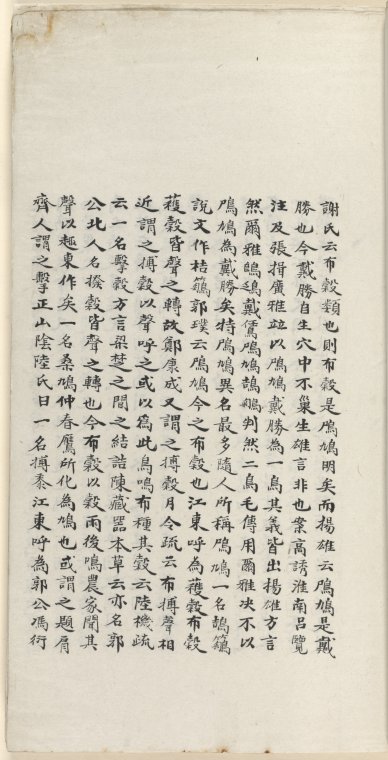 謝氏云布穀類也則布穀是鳲鳩明矣而楊雄云鳲鳩是戴
勝也今戴勝自生穴中不巢生雄言非也案高誘淮南呂覽
注及張揖廣雅竝以鳲鳩戴勝為一鳥其義皆出楊雄方言
然爾雅鵖鴔戴鵀鳲鳩鴶鵴判然二鳥毛傳用爾雅決不以
鳲鳩為戴勝矣特鳲鳩異名最多隨人所稱鳲鳩一名鴶鵴
說文作桔鵴郭璞云鳲鳩今之布穀也江東呼為穫穀布穀
穫穀皆聲之轉故鄭康成又謂之搏穀月令疏云布搏聲相
近謂之搏穀以聲呼之或以為此鳥鳴布種其穀云陸機疏
云一名擊穀方言梁楚之間之結誥陳藏器本草云亦名郭
公北人名撥穀皆聲之轉也今布穀以穀雨後鳴農家聞其
聲以趣東作矣一名桑鳩仲春鷹所化為鳩也或謂之題肩
齊人謂之擊正山陰陸氏曰一名搏黍江東呼為郭公馮衍